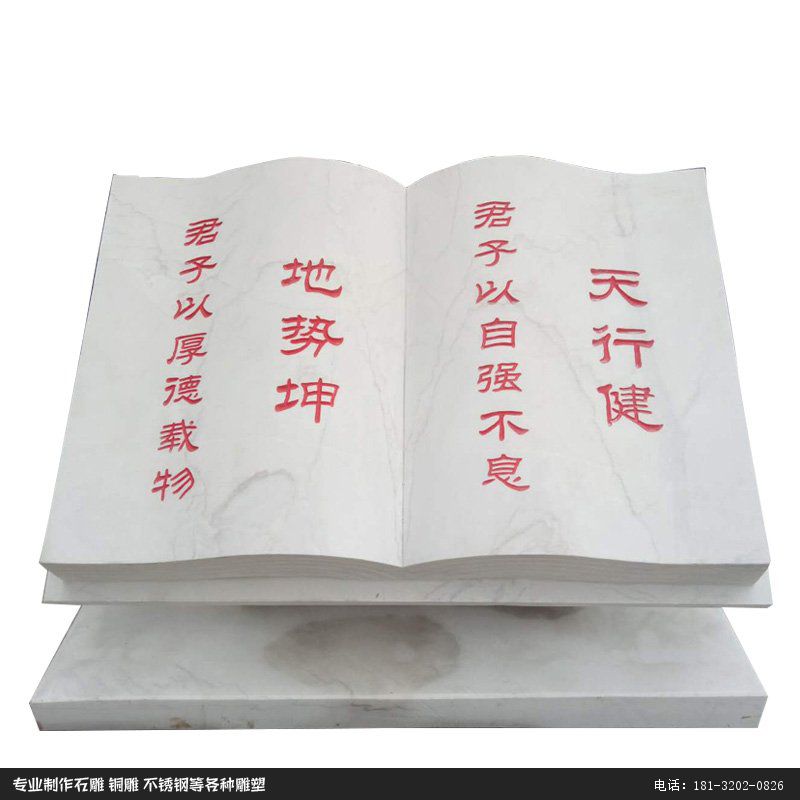 天行健
君子以自强不息
地势坤
君子以厚德载物
专业制作石雕 铜雕 不锈钢等各种雕塑
电话：181-3202-0826